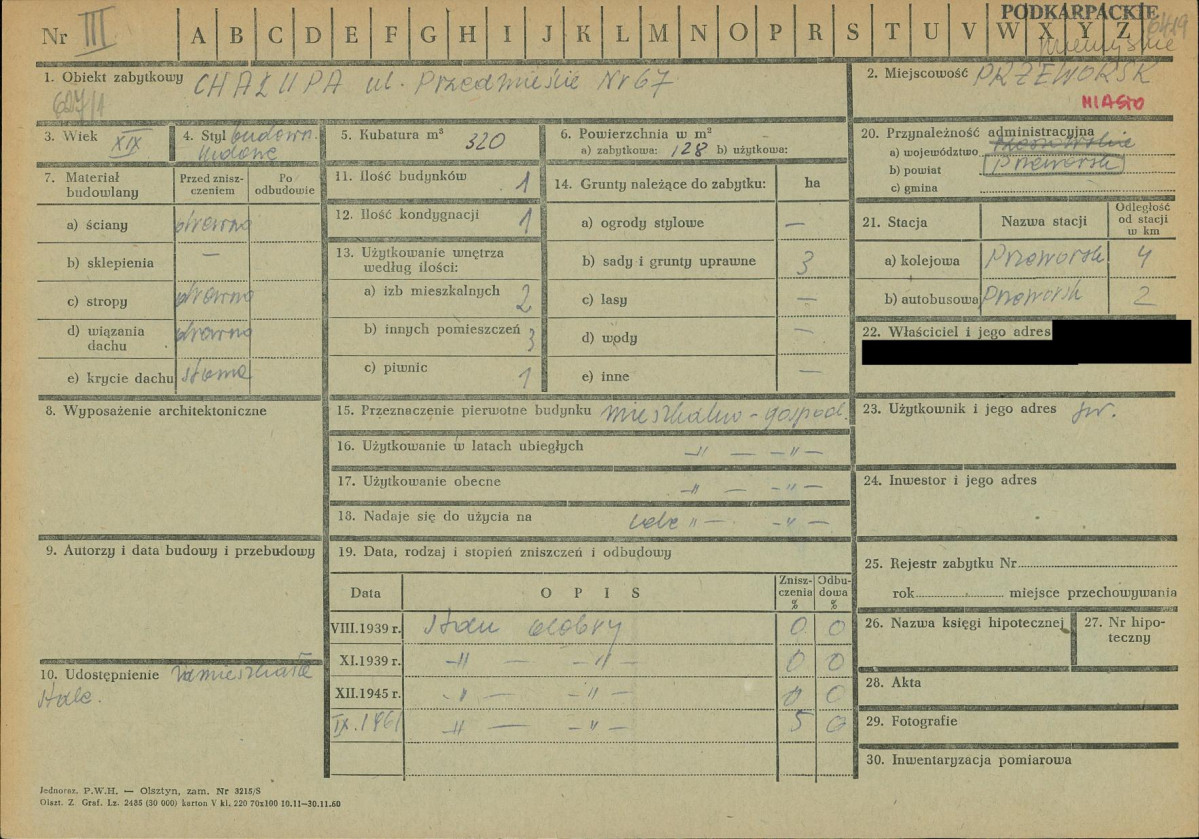 PODKARPACKIE
Nr III A B C D E F G H I J K L M N O P R S T U V W X Y Z
1. Obiekt zabytkowy CHAŁUPA ul. Przedmieście Nr 67
2. Miejscowość PRZEWORSK
MIASTO
627/1
3. Wiek XIX
4. Styl budown. ludowe
5. Kubatura m³ 320
6. Powierzchnia w m²
a) zabytkowa: 128 b) użytkowa:
7. Materiał budowlany
Przed zniszczeniem
Po odbudowie
a) ściany drewno
b) sklepienia —
c) stropy drewno
d) wiązania dachu drewno
e) krycie dachu słoma
8. Wyposażenie architektoniczne
9. Autorzy i data budowy i przebudowy
10. Udostępnienie zamieszkałe
stale.
11. Ilość budynków 1
12. Ilość kondygnacji 1
13. Użytkowanie wnętrza
według ilości:
a) izb mieszkalnych 2
b) innych pomieszczeń 3
c) piwnic 1
14. Grunty należące do zabytku: ha
a) ogrody stylowe —
b) sady i grunty uprawne 3
c) lasy —
d) wody —
e) inne —
15. Przeznaczenie pierwotne budynku mieszkalno-gospod.
16. Użytkowanie w latach ubiegłych –"– — –"–
17. Użytkowanie obecne –"– — –"–
18. Nadaje się do użycia na "– –"–
19. Data, rodzaj i stopień zniszczeń i odbudowy
Data O P I S Zniszczenia % Odbudowa %
VIII.1939 r. Stan dobry 0 0
XI.1939 r. –"– — –"– 0 0
XII.1945 r. –"– — –"– 0 0
IX.1961 –"– — –"– 5 0
20. Przynależność administracyjna
a) województwo
b) powiat Przeworsk
c) gmina
21. Stacja Nazwa stacji Odległość od stacji w km
a) kolejowa Przeworsk 4
b) autobusowa Przeworsk 2
22. Właściciel i jego adres
23. Użytkownik i jego adres jw.
24. Inwestor i jego adres
25. Rejestr zabytku Nr
rok miejsce przechowywania
26. Nazwa księgi hipotecznej
27. Nr hipoteczny
28. Akta
29. Fotografie
30. Inwentaryzacja pomiarowa
Jednoraz. P.W.H. — Olsztyn, zam. Nr 3215/S
Olszt. Z. Graf. Lz. 2485 (30 000) karton V kl. 220 70x100 10.11—30.11.60